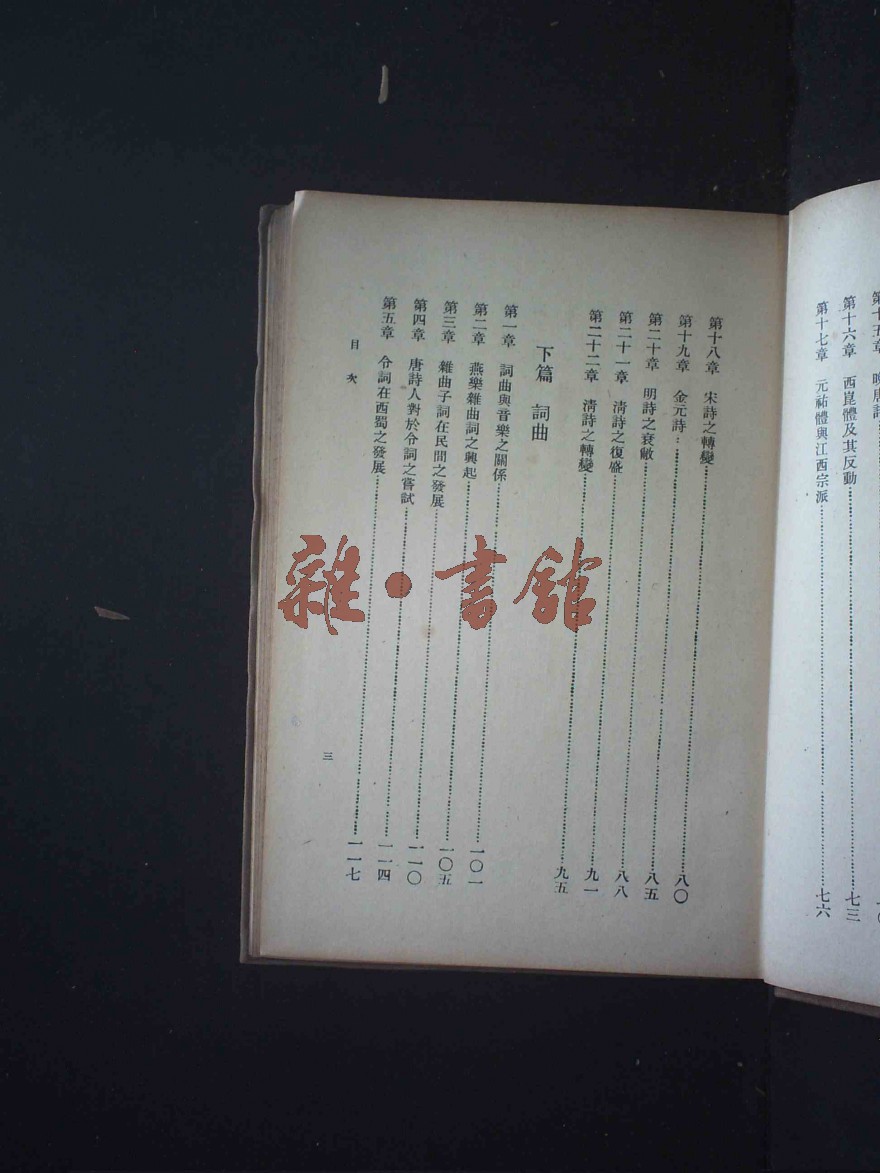 第十六章　西崑體及其反動…………七三
第十七章　元祐體與江西宗派…………七六
第十八章　宋詩之轉變…………八〇
第十九章　金元詩…………八五
第二十章　明詩之衰敝…………八八
第二十一章　淸詩之復盛…………九一
第二十二章　淸詩之轉變…………九五
下篇　詞曲
第一章　詞曲與音樂之關係…………一〇一
第二章　燕樂雜曲詞之興起…………一〇五
第三章　雜曲子詞在民間之發展…………一一〇
第四章　唐詩人對於令詞之嘗試…………一一四
第五章　令詞在西蜀之發展…………一一七
目次
三
雜·書館